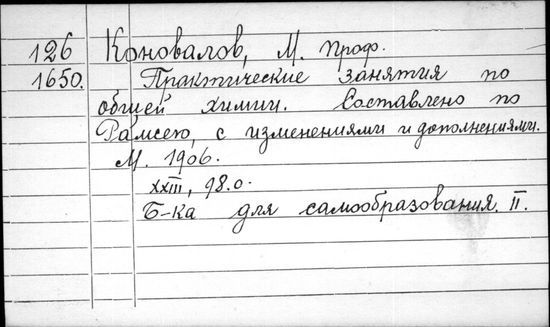 126 Коновалов, М. проф.
1650. Практические занятия по
общей химии. Составлено по
Рамсею, с изменениями и дополнениями.
М. 1906.
XXIII, 98.0.
Б-ка для самообразования. II.